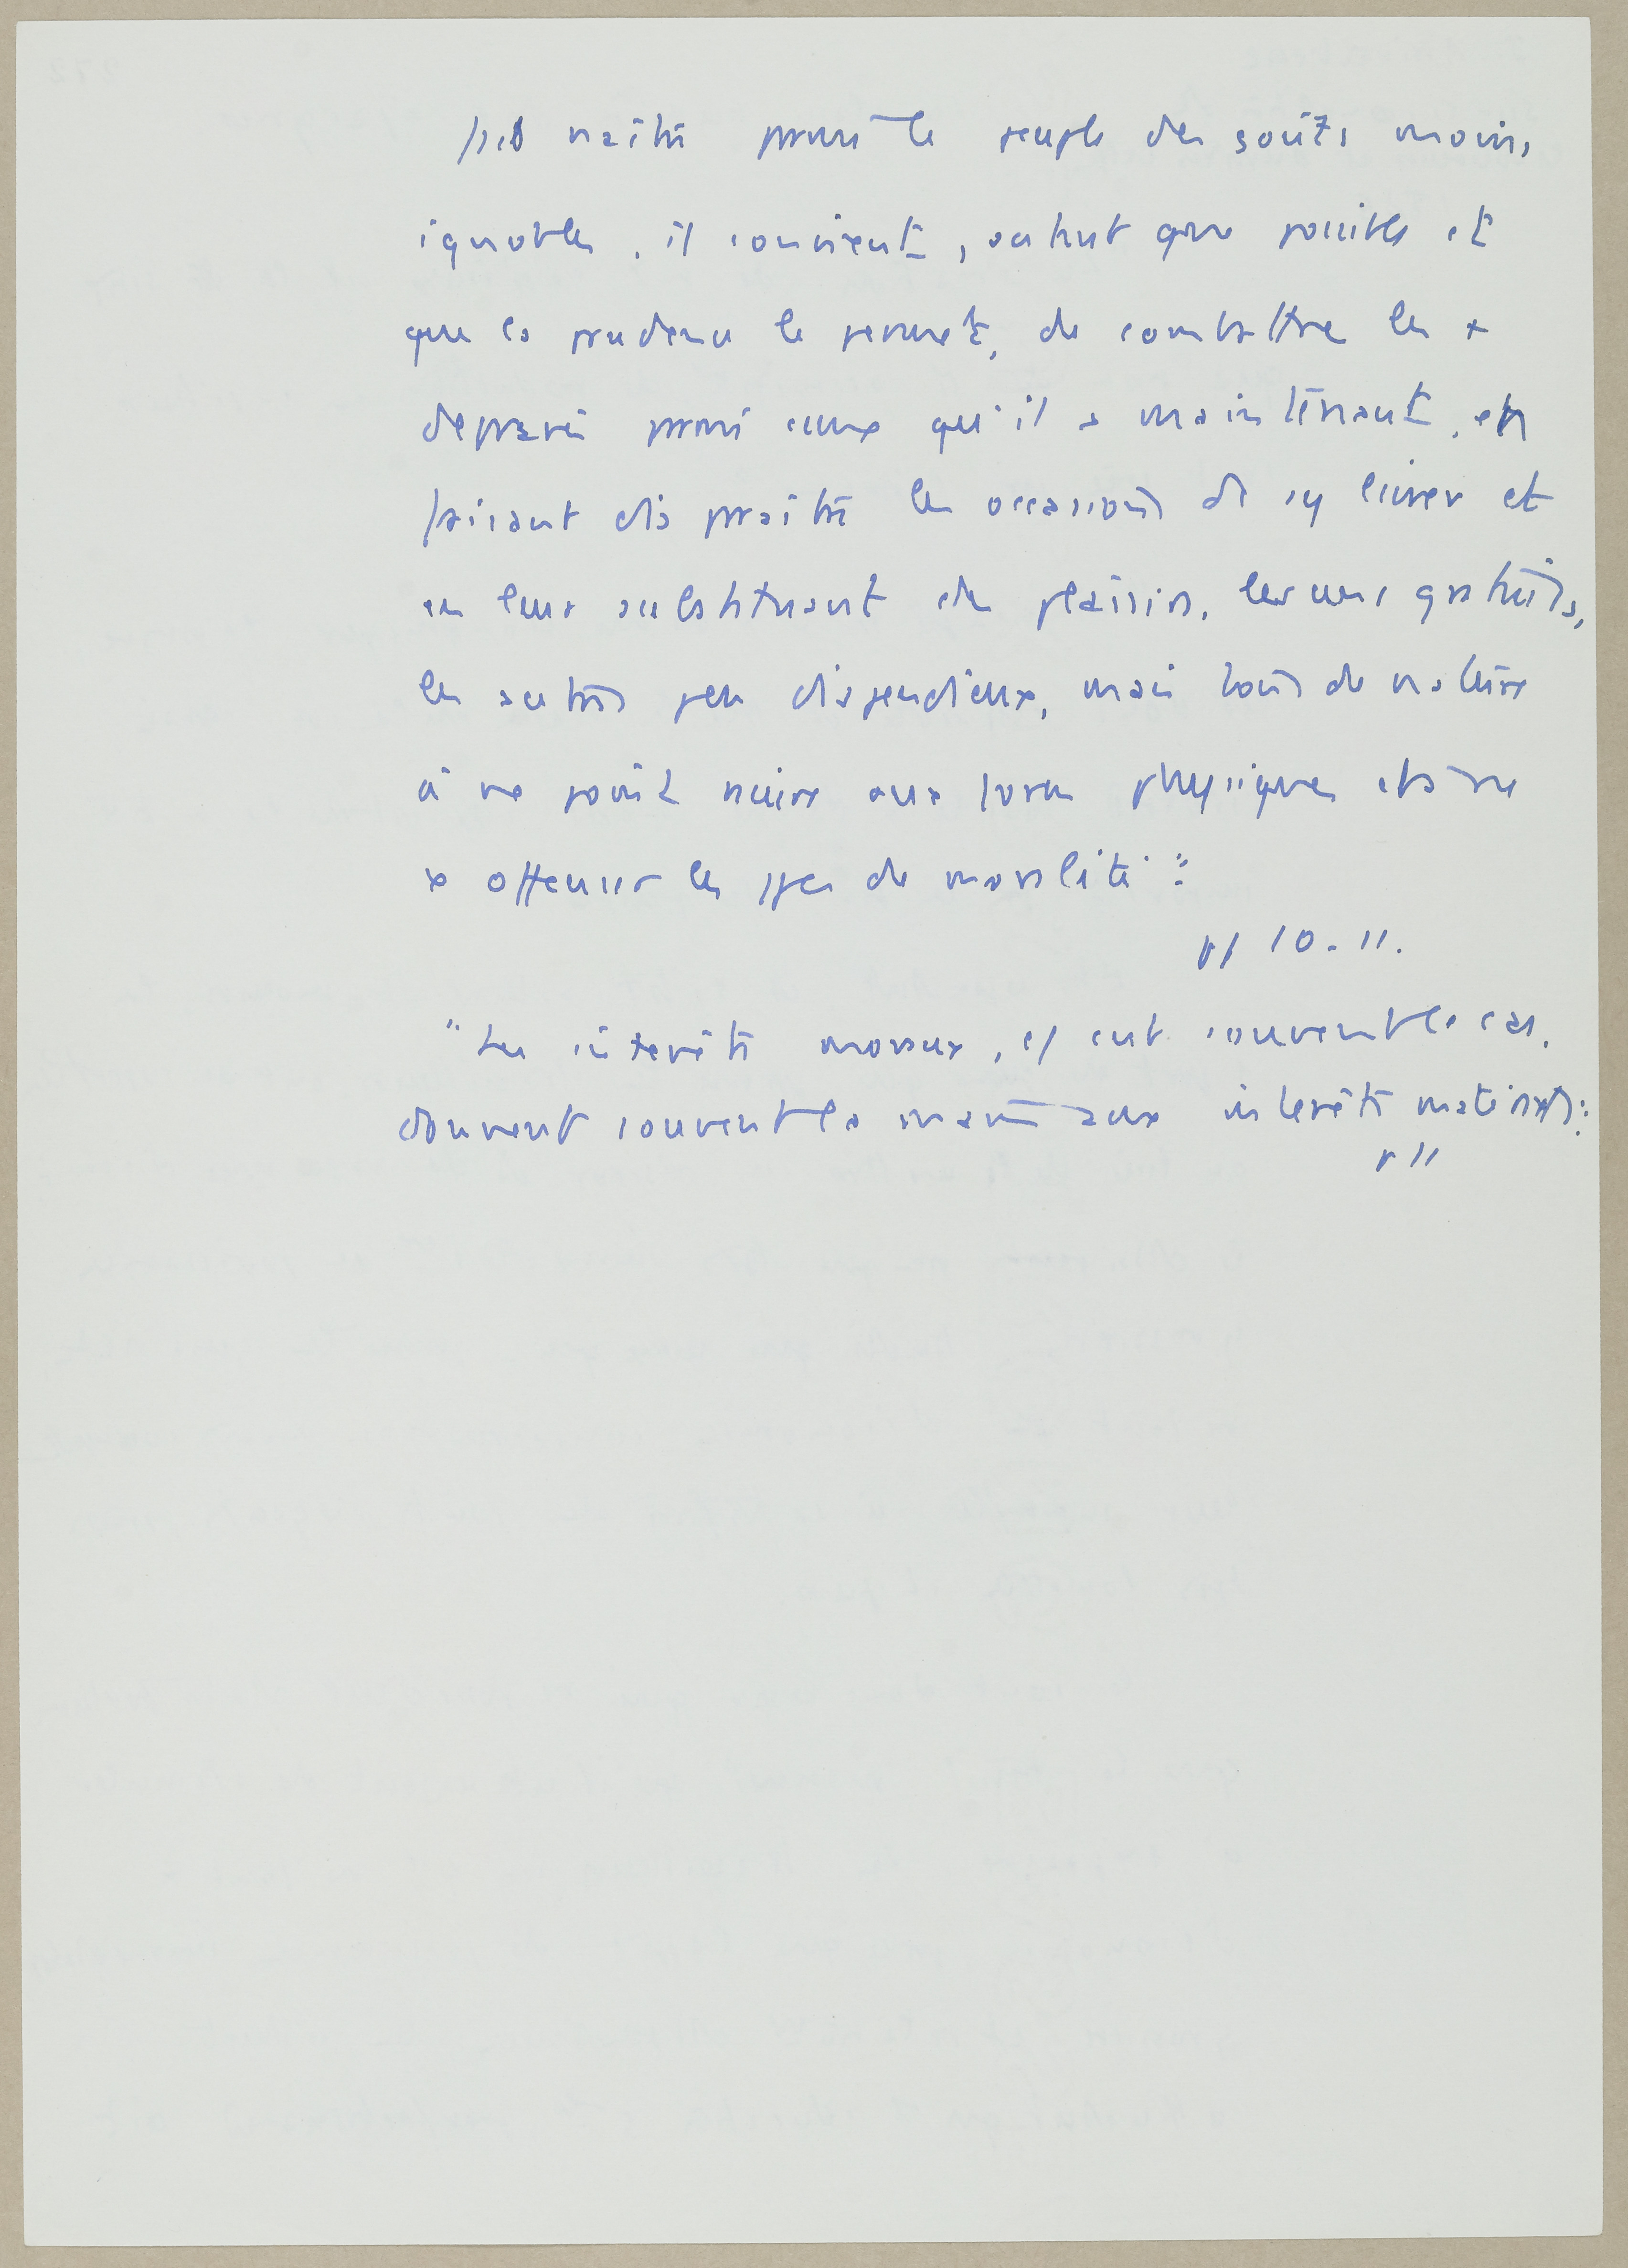 naître parmi le peuple des goûts moins
ignobles, il convient, autant que possible et
que la prudence le permet, de combattre les +
dépravés parmi ceux qu'il a maintenant, en
faisant disparaître les occasions de s'y livrer et
en leur substituant des plaisirs, les uns gratuits,
les autres peu dispendieux, mais tous de nature
à ne point nuire aux forces physiques et à ne
pas offenser les de moralité".
p/ 10-11.
"Les intérêts moraux, et c'est souvent le cas,
doivent souvent la main aux intérêts matériels".
p 11